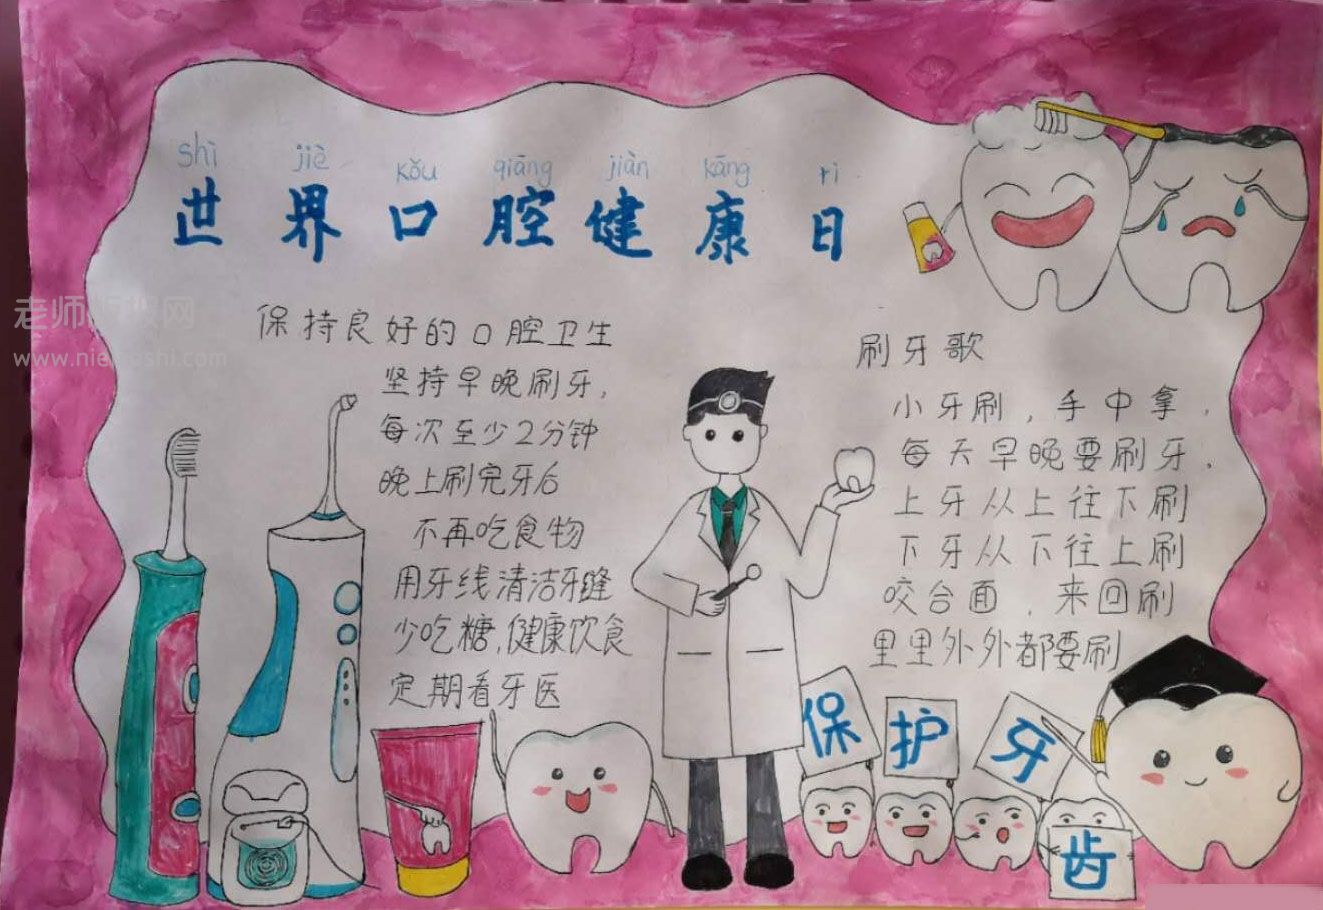 shì jiè kǒu qiāng jiàn kāng rì
世界口腔健康日
保持良好的口腔卫生
坚持早晚刷牙,
每次至少2分钟
晚上刷完牙后
不再吃食物
用牙线清洁牙缝
少吃糖,健康饮食
定期看牙医
刷牙歌
小牙刷,手中拿,
每天早晚要刷牙,
上牙从上往下刷
下牙从下往上刷
咬合面,来回刷
里里外外都要刷
保护牙
齿
老师